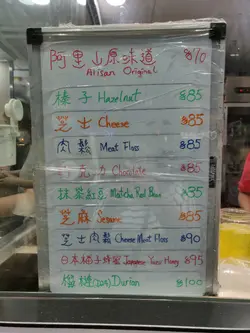 阿里山原味道 $70
Alisan Original
榛子 Hazelnut $85
芝士 Cheese $85
肉鬆 Meat Floss $85
Chocolate $85
抹茶紅豆 Matcha Red Bean $85
芝麻 Sesame $85
芝士肉鬆 Cheese Meat Floss $90
日本柚子蜂蜜 Japanese Yuzu Honey $95
榴槤 Durian $100